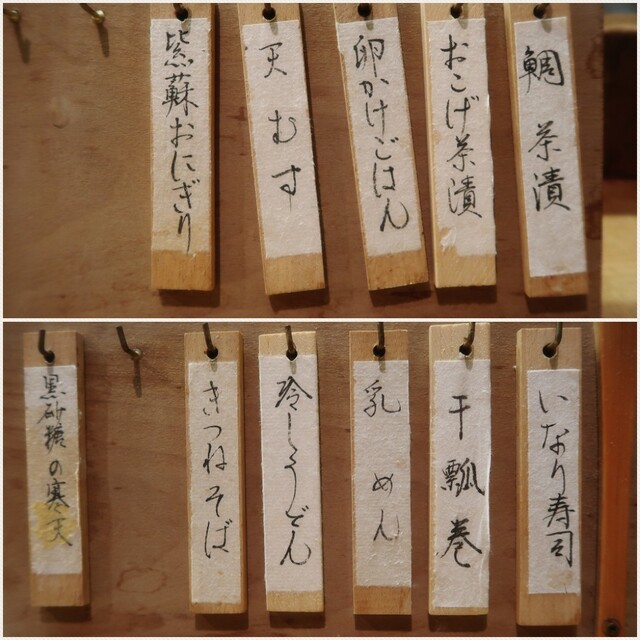 鯛茶漬
おこげ茶漬
卵かけごはん
天むす
紫蘇おにぎり
いなり寿司
干瓢巻
乳めん
冷しうどん
きつねそば
黒砂糖の寒天